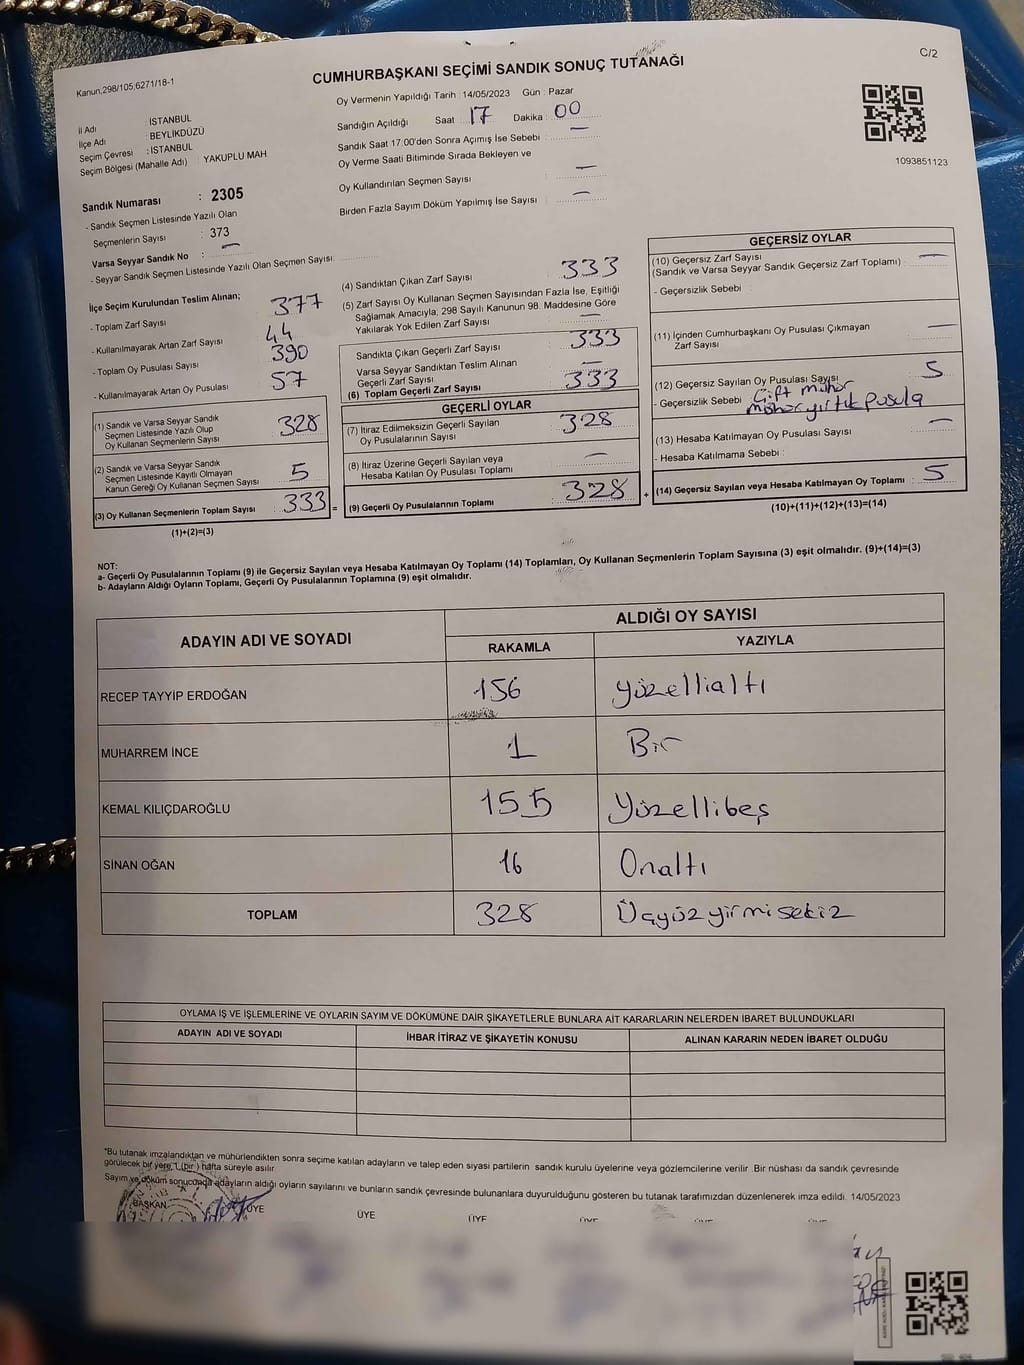 Kanun:298/105;6271/18-1
C/2
CUMHURBAŞKANI SEÇİMİ SANDIK SONUÇ TUTANAĞI
1093851123
İl Adı : İSTANBUL
İlçe Adı : BEYLİKDÜZÜ
Seçim Çevresi : İSTANBUL
Seçim Bölgesi (Mahalle Adı) : YAKUPLU MAH
Oy Vermenin Yapıldığı Tarih : 14/05/2023 Gün : Pazar
Sandığın Açıldığı Saat : 17 Dakika : 00
Sandık Saat 17:00'den Sonra Açımış İse Sebebi : —
Oy Verme Saati Bitiminde Sırada Bekleyen ve
Oy Kullandırılan Seçmen Sayısı : —
Birden Fazla Sayım Döküm Yapılmış İse Sayısı : —
Sandık Numarası : 2305
- Sandık Seçmen Listesinde Yazılı Olan
Seçmenlerin Sayısı : 373
Varsa Seyyar Sandık No : —
- Seyyar Sandık Seçmen Listesinde Yazılı Olan Seçmen Sayısı:
İlçe Seçim Kurulundan Teslim Alınan;
- Toplam Zarf Sayısı 377
- Kullanılmayarak Artan Zarf Sayısı 44
- Toplam Oy Pusulası Sayısı 390
- Kullanılmayarak Artan Oy Pusulası 57
(1) Sandık ve Varsa Seyyar Sandık
Seçmen Listesinde Yazılı Olup
Oy Kullanan Seçmenlerin Sayısı 328
(2) Sandık ve Varsa Seyyar Sandık
Seçmen Listesinde Kayıtlı Olmayan
Kanun Gereği Oy Kullanan Seçmen Sayısı 5
(3) Oy Kullanan Seçmenlerin Toplam Sayısı 333 =
(1)+(2)=(3)
(4) Sandıktan Çıkan Zarf Sayısı 333
(5) Zarf Sayısı Oy Kullanan Seçmen Sayısından Fazla İse, Eşitliği
Sağlamak Amacıyla, 298 Sayılı Kanunun 98. Maddesine Göre
Yakılarak Yok Edilen Zarf Sayısı —
Sandıkta Çıkan Geçerli Zarf Sayısı 333
Varsa Seyyar Sandıktan Teslim Alınan
Geçerli Zarf Sayısı —
(6) Toplam Geçerli Zarf Sayısı 333
GEÇERLİ OYLAR
(7) İtiraz Edilmeksizin Geçerli Sayılan
Oy Pusulalarının Sayısı 328
(8) İtiraz Üzerine Geçerli Sayılan veya
Hesaba Katılan Oy Pusulası Toplamı —
(9) Geçerli Oy Pusulalarının Toplamı 328 +
GEÇERSİZ OYLAR
(10) Geçersiz Zarf Sayısı
(Sandık ve Varsa Seyyar Sandık Geçersiz Zarf Toplamı) : —
- Geçersizlik Sebebi :
(11) İçinden Cumhurbaşkanı Oy Pusulası Çıkmayan
Zarf Sayısı —
(12) Geçersiz Sayılan Oy Pusulası Sayısı 5
- Geçersizlik Sebebi : Çift mühür
mühür yırtık pusula
(13) Hesaba Katılmayan Oy Pusulası Sayısı —
- Hesaba Katılmama Sebebi :
(14) Geçersiz Sayılan veya Hesaba Katılmayan Oy Toplamı : 5
(10)+(11)+(12)+(13)=(14)
NOT:
a- Geçerli Oy Pusulalarının Toplamı (9) ile Geçersiz Sayılan veya Hesaba Katılmayan Oy Toplamı (14) Toplamları, Oy Kullanan Seçmenlerin Toplam Sayısına (3) eşit olmalıdır. (9)+(14)=(3)
b- Adayların Aldığı Oyların Toplamı, Geçerli Oy Pusulalarının Toplamına (9) eşit olmalıdır.
ADAYIN ADI VE SOYADI ALDIĞI OY SAYISI
RAKAMLA YAZIYLA
RECEP TAYYİP ERDOĞAN 156 yüzellialtı
MUHARREM İNCE 1 Bir
KEMAL KILIÇDAROĞLU 155 Yüzellibeş
SİNAN OĞAN 16 Onaltı
TOPLAM 328 Üçyüzyirmisekiz
OYLAMA İŞ VE İŞLEMLERİNE VE OYLARIN SAYIM VE DÖKÜMÜNE DAİR ŞİKAYETLERLE BUNLARA AİT KARARLARIN NELERDEN İBARET BULUNDUKLARI
ADAYIN ADI VE SOYADI İHBAR İTİRAZ VE ŞİKAYETİN KONUSU ALINAN KARARIN NEDEN İBARET OLDUĞU
*Bu tutanak imzalandıktan ve mühürlendikten sonra seçime katılan adayların ve talep eden siyasi partilerin sandık kurulu üyelerine veya gözlemcilerine verilir. Bir nüshası da sandık çevresinde
görülecek bir yere 1 (bir) hafta süreyle asılır.
Sayım ve döküm sonucunda adayların aldığı oyların sayılarını ve bunların sandık çevresinde bulunanlara duyurulduğunu gösteren bu tutanak tarafımızdan düzenlenerek imza edildi. 14/05/2023
BAŞKAN ÜYE ÜYE ÜYE ÜYE ÜYE ÜYE